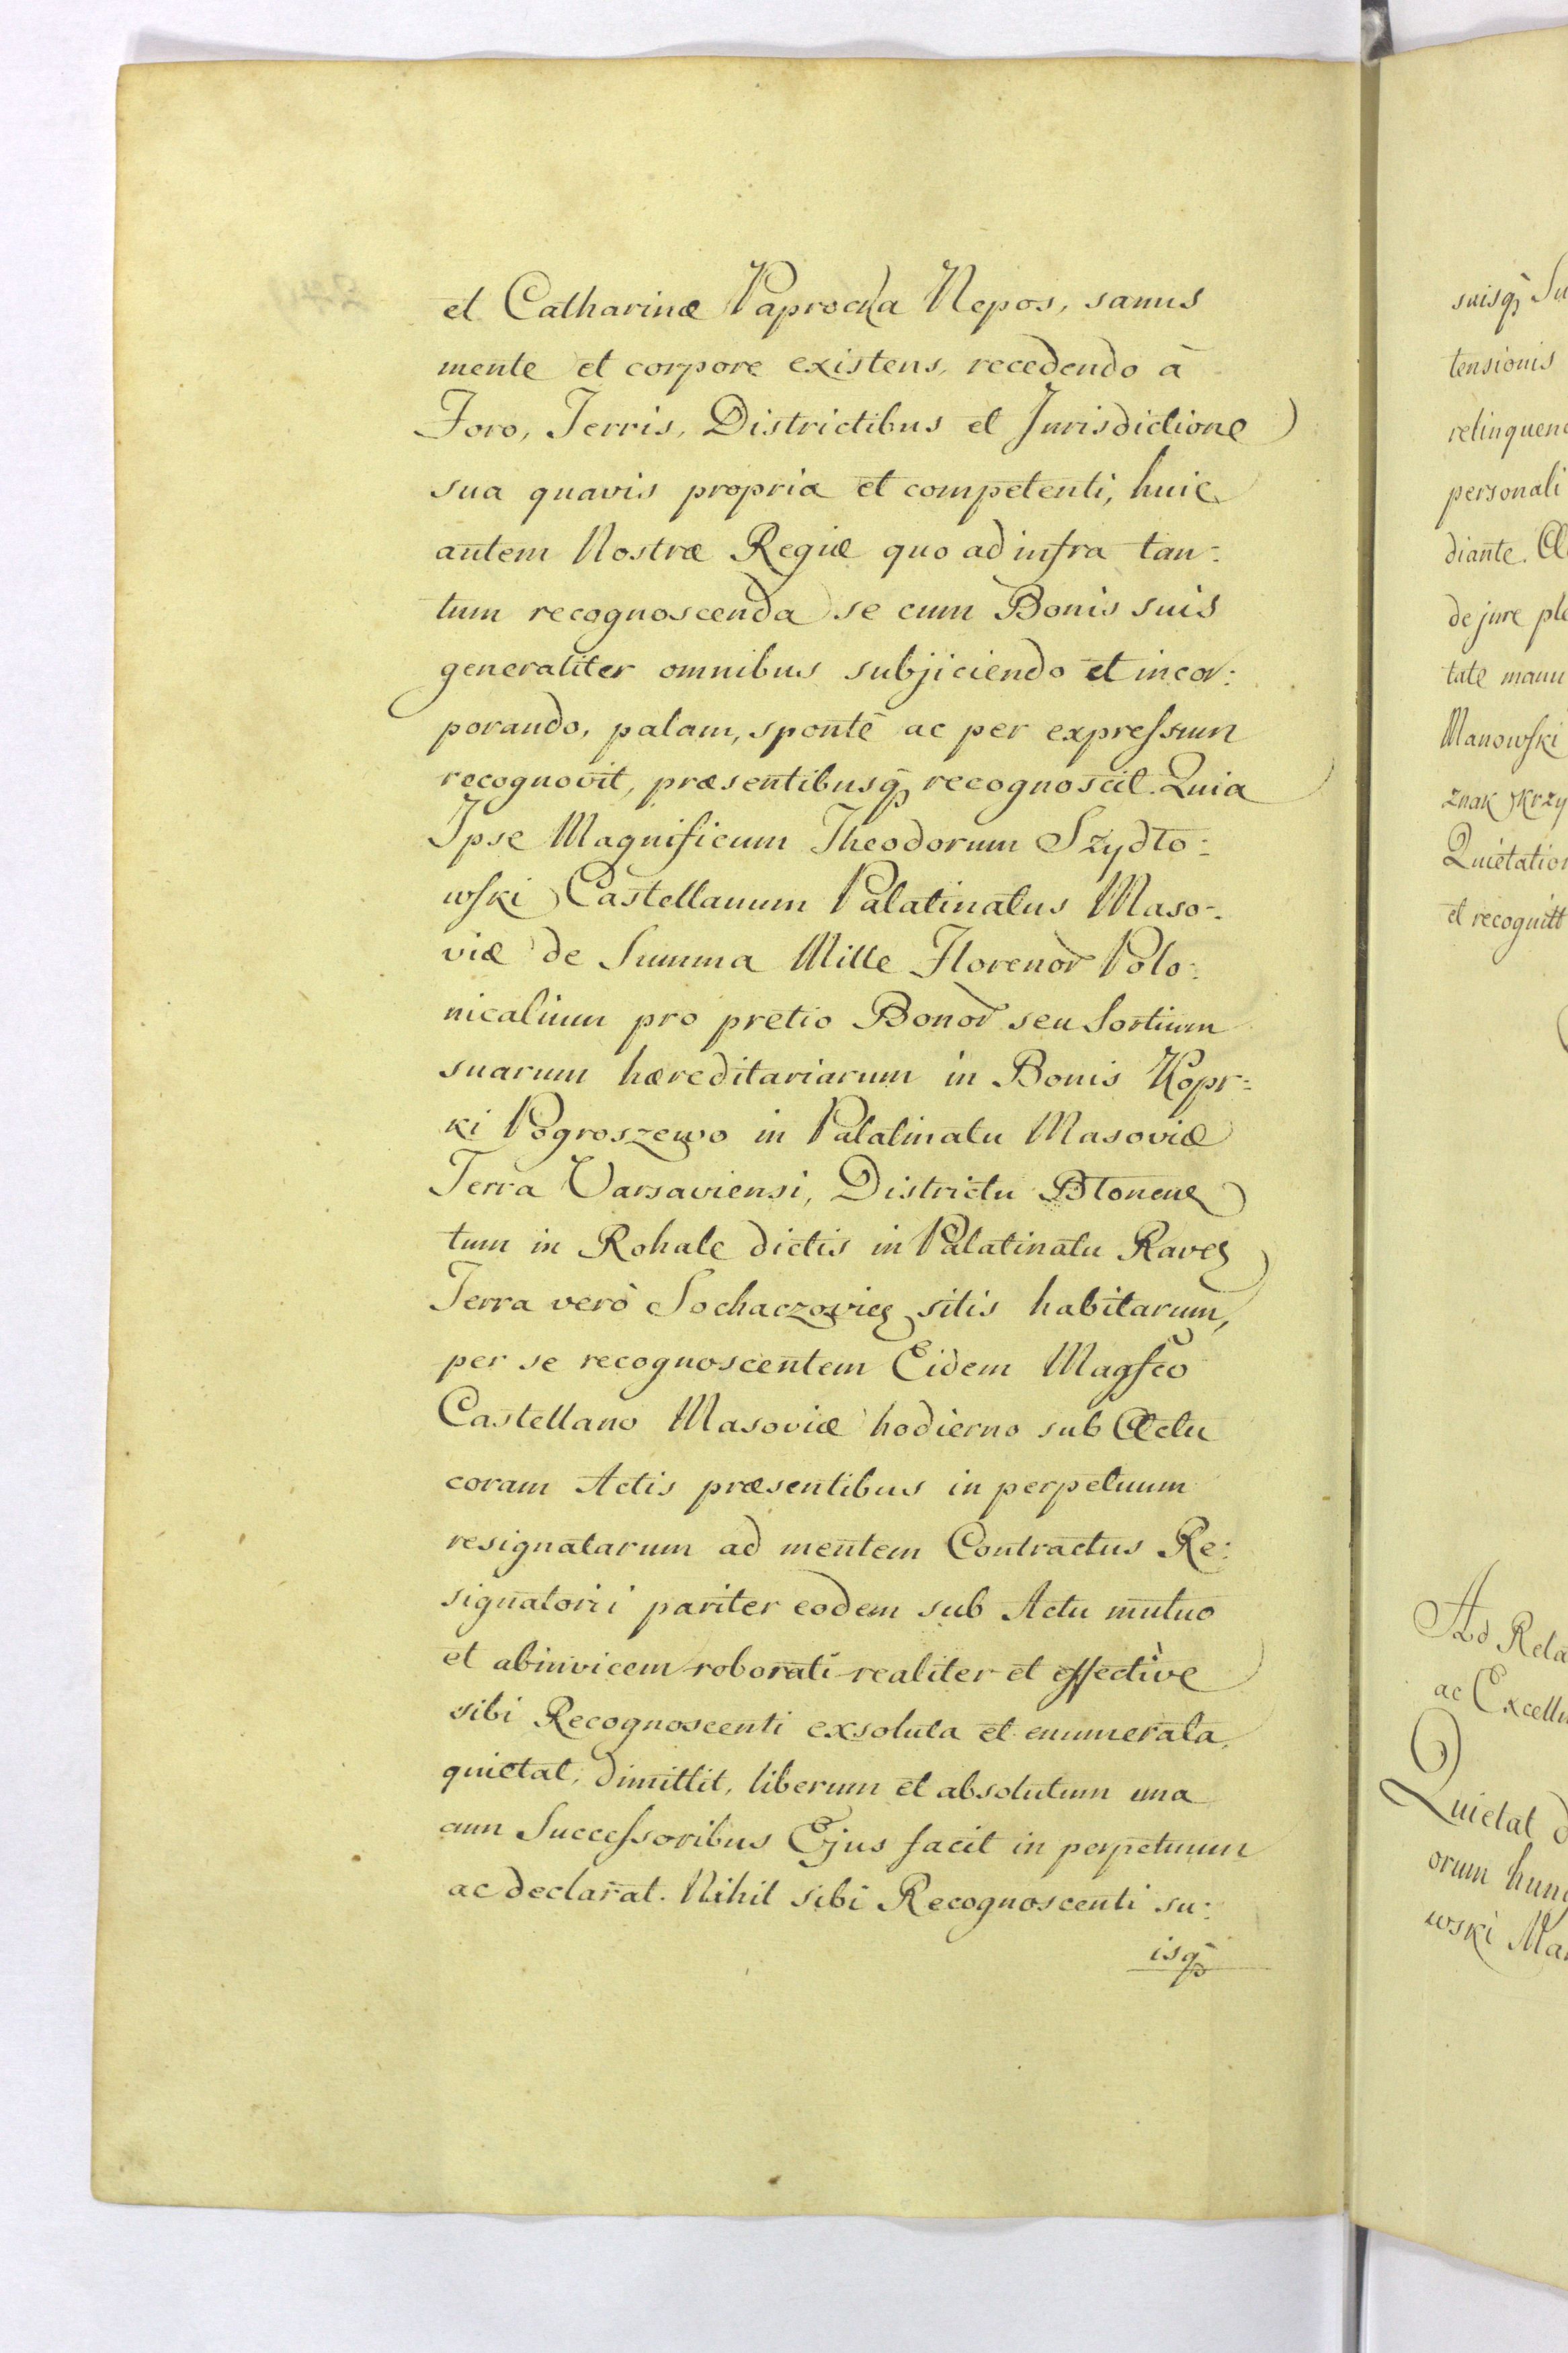 et Catharinæ Paprocka Nepos, sanus
mente et corpore existens, recedendo à
Foro, Terris, Districtibus et Jurisdictione
sua quavis propria et competenti, huic
autem Nostræ Regiæ quo ad infra tan:
tum recognoscenda se cum Bonis suis
generaliter omnibus subjiciendo et incor:
porando, palam, sponte ac per expressum
recognovit, præsentibusq̃ recognoscit. Quia
Ipse Magnificum Theodorum Szydło:
wski Castellanum Palatinatus Maso:
viæ de Summa Mille Florenor̃ Polo:
nicalium pro pretio Bonor̃ seu Sortium
suarum hæreditariarum in Bonis Kopr:
ki Pogroszewo in Palatinatu Masoviæ
Terra Varsaviensi, Districtu Błonen
tum in Rokale dictis in Palatinatu Raven
Terra verò Sochaczovien sitis habitarum,
per se recognoscentem Eidem Magfco
Castellano Masoviæ hodierno sub Actu
coram Actis præsentibus in perpetuum
resignatarum ad mentem Contractus Re:
signatorii pariter eodem sub Actu mutuo
et abinvicem roborati realiter et effective
sibi Recognoscenti exsoluta et enumerata,
quietat, dimittit, liberum et absolutum una
cum Successoribus Ejus facit in perpetuum
ac declarat. Nihil sibi Recognoscenti su:
isq̃
suisq̃ Su
tensionis
relinquen
personali
diante. A
de jure ple
tate manu
Manowski
znak krzy
Quietation
et recognitt
Ad Rela
ac Excell
Quietat d
orum hun
wski Ma